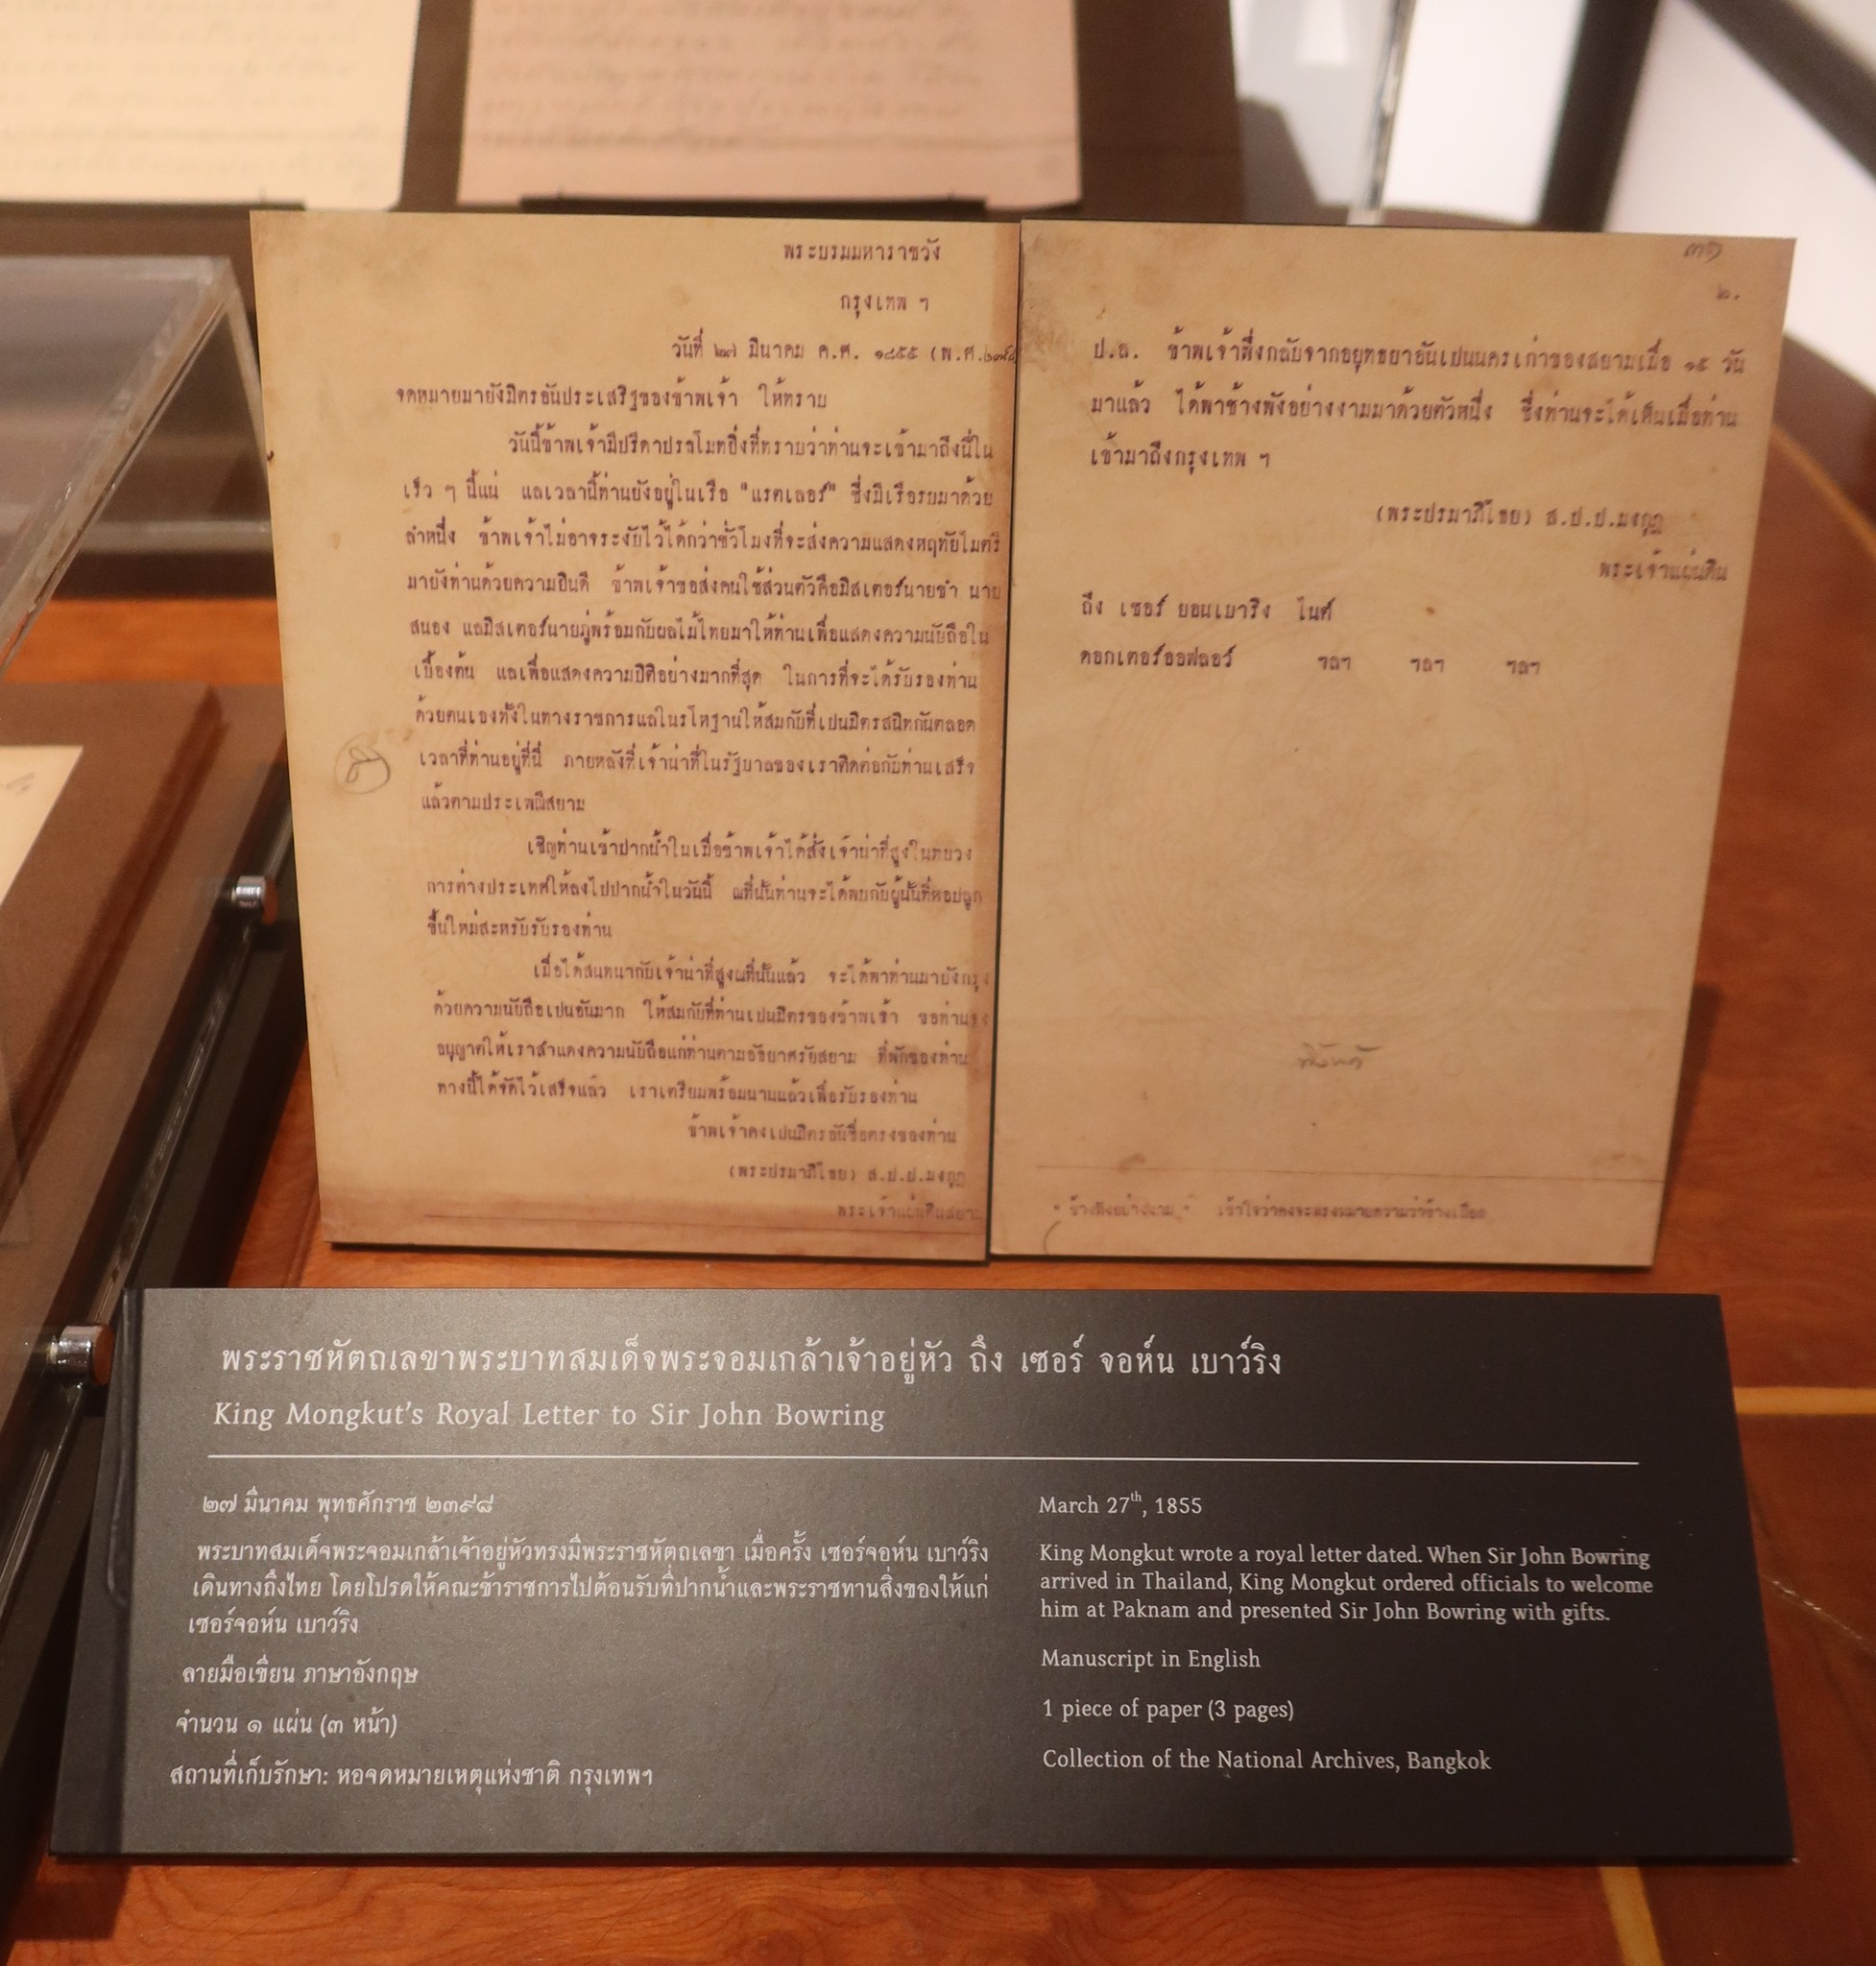 พระบรมมหาราชวัง
กรุงเทพ ฯ
วันที่ ๒๗ มีนาคม ค.ศ. ๑๘๕๕ (พ.ศ.๒๓๙๘
จดหมายมายังมิตรอันประเสริฐของข้าพเจ้า ให้ทราบ
วันนี้ข้าพเจ้ามีปรีดาปราโมทยิ่งที่ทราบว่าท่านจะเข้ามาถึงนี่ใน
เร็ว ๆ นี้แน่ แลเวลานี้ท่านยังอยู่ในเรือ "แรตเลอร์" ซึ่งมีเรือรบมาด้วย
ลำหนึ่ง ข้าพเจ้าไม่อาจระงับไว้ได้กว่าชั่วโมงที่จะส่งความแสดงหฤทัยไมตรี
มายังท่านด้วยความยินดี ข้าพเจ้าขอส่งคนใช้ส่วนตัวคือมิสเตอร์นายขำ นาย
สนอง แลมิสเตอร์นายภู่พร้อมกับผลไม้ไทยมาให้ท่านเพื่อแสดงความนับถือใน
เบื้องต้น แลเพื่อแสดงความปิติอย่างมากที่สุด ในการที่จะได้รับรองท่าน
ด้วยตนเองทั้งในทางราชการแลในรโหฐานให้สมกับที่เปนมิตรสนิทกันตลอด
เวลาที่ท่านอยู่ที่นี่ ภายหลังที่เจ้าน่าที่ในรัฐบาลของเราติดต่อกับท่านเสร็จ
แล้วตามประเพณีสยาม
เชิญท่านเข้าปากน้ำในเมื่อข้าพเจ้าได้สั่งเจ้าน่าที่สูงในกระทรวง
การต่างประเทศให้ลงไปปากน้ำในวันนี้ ณที่นั้นท่านจะได้พบกับผู้นั้นที่หอปลูก
ขึ้นใหม่สะหรับรับรองท่าน
เมื่อได้สนทนากับเจ้าน่าที่สูงณที่นั้นแล้ว จะได้พาท่านมายังกรุง
ด้วยความนับถือเปนอันมาก ให้สมกับที่ท่านเปนมิตรของข้าพเจ้า ขอท่านจง
อนุญาตให้เราสำแดงความนับถือแก่ท่านตามอัธยาศรัยสยาม ที่พักของท่าน
ทางนี้ได้จัดไว้เสร็จแล้ว เราเตรียมพร้อมนานแล้วเพื่อรับรองท่าน
ข้าพเจ้าคงเปนมิตรอันซื่อตรงของท่าน
(พระปรมาภิไธย) ส.ป.ป.มงกุฎ
พระเจ้าแผ่นดินสยาม
๓๑
๒.
ป.ล. ข้าพเจ้าพึ่งกลับจากอยุทธยาอันเปนนครเก่าของสยามเมื่อ ๑๕ วัน
มาแล้ว ได้พาช้างพังอย่างงามมาด้วยตัวหนึ่ง ซึ่งท่านจะได้เห็นเมื่อท่าน
เข้ามาถึงกรุงเทพ ฯ
(พระปรมาภิไธย) ส.ป.ป.มงกุฎ
พระเจ้าแผ่นดิน
ถึง เซอร์ ยอนเบาริง ไนต์
ดอกเตอร์ออฟลอว์ ฯลฯ ฯลฯ ฯลฯ
" ช้างพังอย่างงาม " เข้าใจว่าคงจะทรงหมายความว่าช้างเผือก
พระราชหัตถเลขาพระบาทสมเด็จพระจอมเกล้าเจ้าอยู่หัว ถึง เซอร์ จอห์น เบาว์ริง
King Mongkut's Royal Letter to Sir John Bowring
๒๗ มีนาคม พุทธศักราช ๒๓๙๘
พระบาทสมเด็จพระจอมเกล้าเจ้าอยู่หัวทรงมีพระราชหัตถเลขา เมื่อครั้ง เซอร์จอห์น เบาว์ริง
เดินทางถึงไทย โดยโปรดให้คณะข้าราชการไปต้อนรับที่ปากน้ำและพระราชทานสิ่งของให้แก่
เซอร์จอห์น เบาว์ริง
ลายมือเขียน ภาษาอังกฤษ
จำนวน ๑ แผ่น (๓ หน้า)
สถานที่เก็บรักษา: หอจดหมายเหตุแห่งชาติ กรุงเทพฯ
March 27th, 1855
King Mongkut wrote a royal letter dated. When Sir John Bowring
arrived in Thailand, King Mongkut ordered officials to welcome
him at Paknam and presented Sir John Bowring with gifts.
Manuscript in English
1 piece of paper (3 pages)
Collection of the National Archives, Bangkok